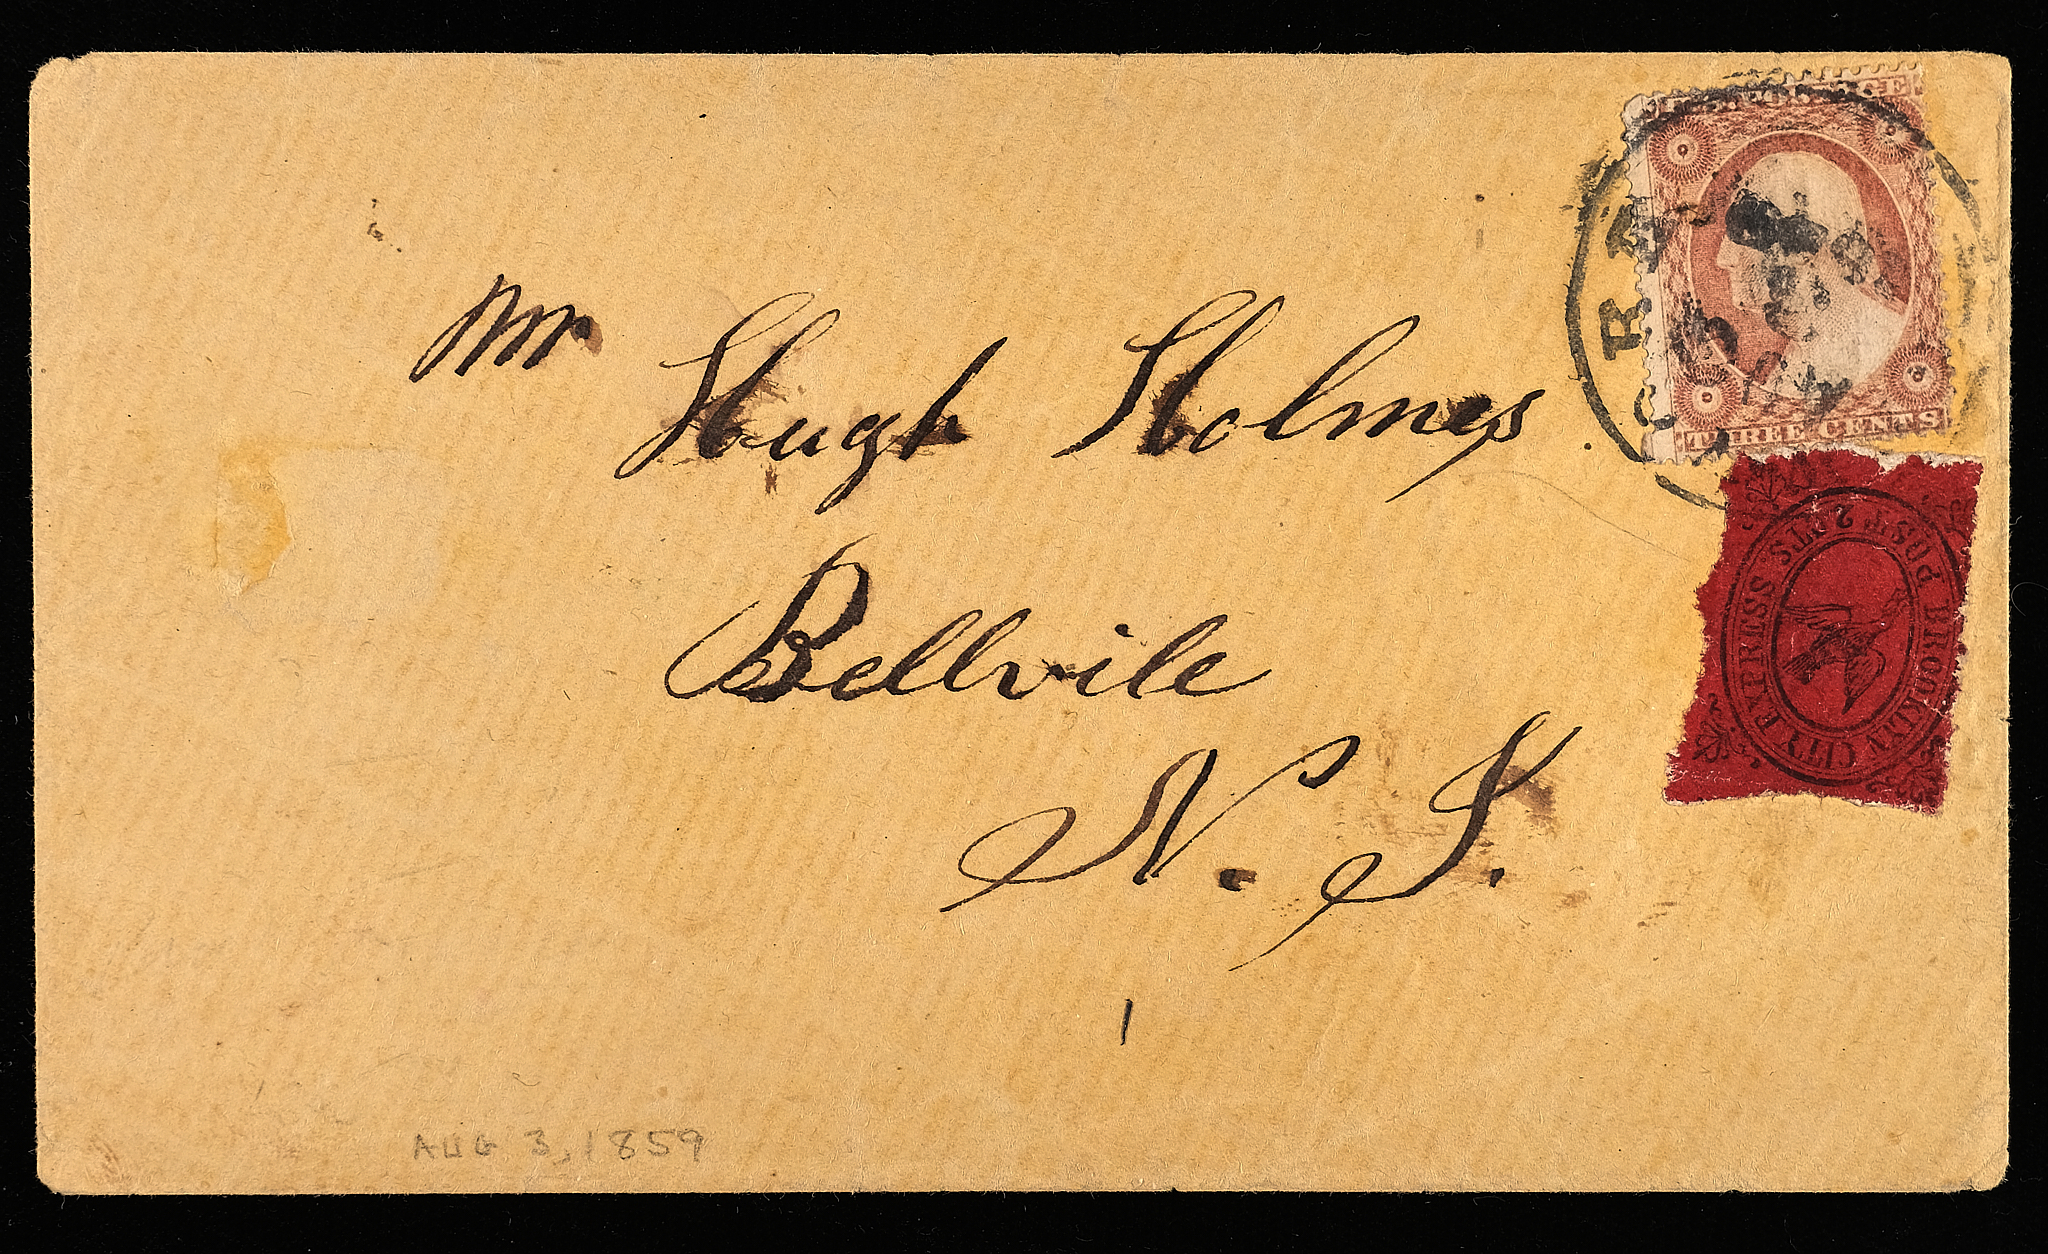 Mr Hugh Holmes
Bellvile
N. J.
AUG 3, 1859
THREE CENTS
BROOKLYN CITY EXPRESS POST
2 CTS